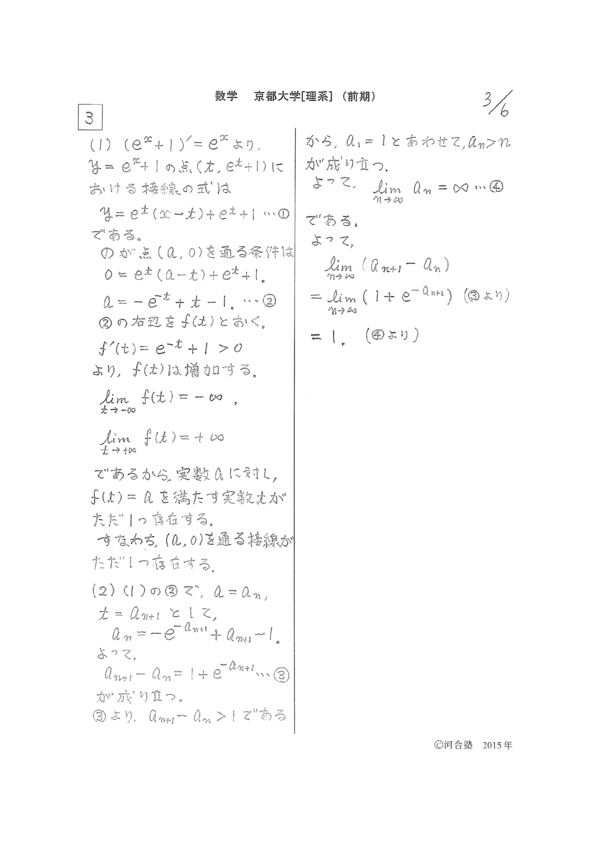 数学 京都大学[理系] (前期)
3/6
3
(1) (eˣ+1)′=eˣより,
y=eˣ+1の点(t, eᵗ+1)に
おける接線の式は
y=eᵗ(x−t)+eᵗ+1 …①
である。
①が点(a,0)を通る条件は
0=eᵗ(a−t)+eᵗ+1.
a=−e⁻ᵗ+t−1. …②
②の右辺をf(t)とおく.
f′(t)=e⁻ᵗ+1>0
より, f(t)は増加する.
lim_{t→−∞} f(t)=−∞,
lim_{t→+∞} f(t)=+∞
であるから, 実数aに対し,
f(t)=aを満たす実数tが
ただ1つ存在する.
すなわち, (a,0)を通る接線が
ただ1つ存在する.
(2) (1)の②で, a=aₙ,
t=aₙ₊₁として,
aₙ=−e^{−aₙ₊₁}+aₙ₊₁−1.
よって,
aₙ₊₁−aₙ=1+e^{−aₙ₊₁} …③
が成り立つ.
③より, aₙ₊₁−aₙ>1である
から, a₁=1とあわせて, aₙ>n
が成り立つ.
よって, lim_{n→∞} aₙ=∞ …④
である.
よって,
lim_{n→∞} (aₙ₊₁−aₙ)
=lim_{n→∞} (1+e^{−aₙ₊₁}) (③より)
=1. (④より)
©河合塾 2015年